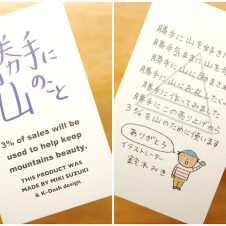 勝手に
山のこと
3% of sales will be
used to help keep
mountains beauty.
THIS PRODUCT WAS
MADE BY MIKI SUZUKI
& K-Dash design
勝手に山を好き
勝手気ままに山を
勝手に山に
勝手に山に
勝手に作ってみました
勝手にこの売り上げから
3%を山のために使います
ありがとう
イラストレーター
鈴木みき